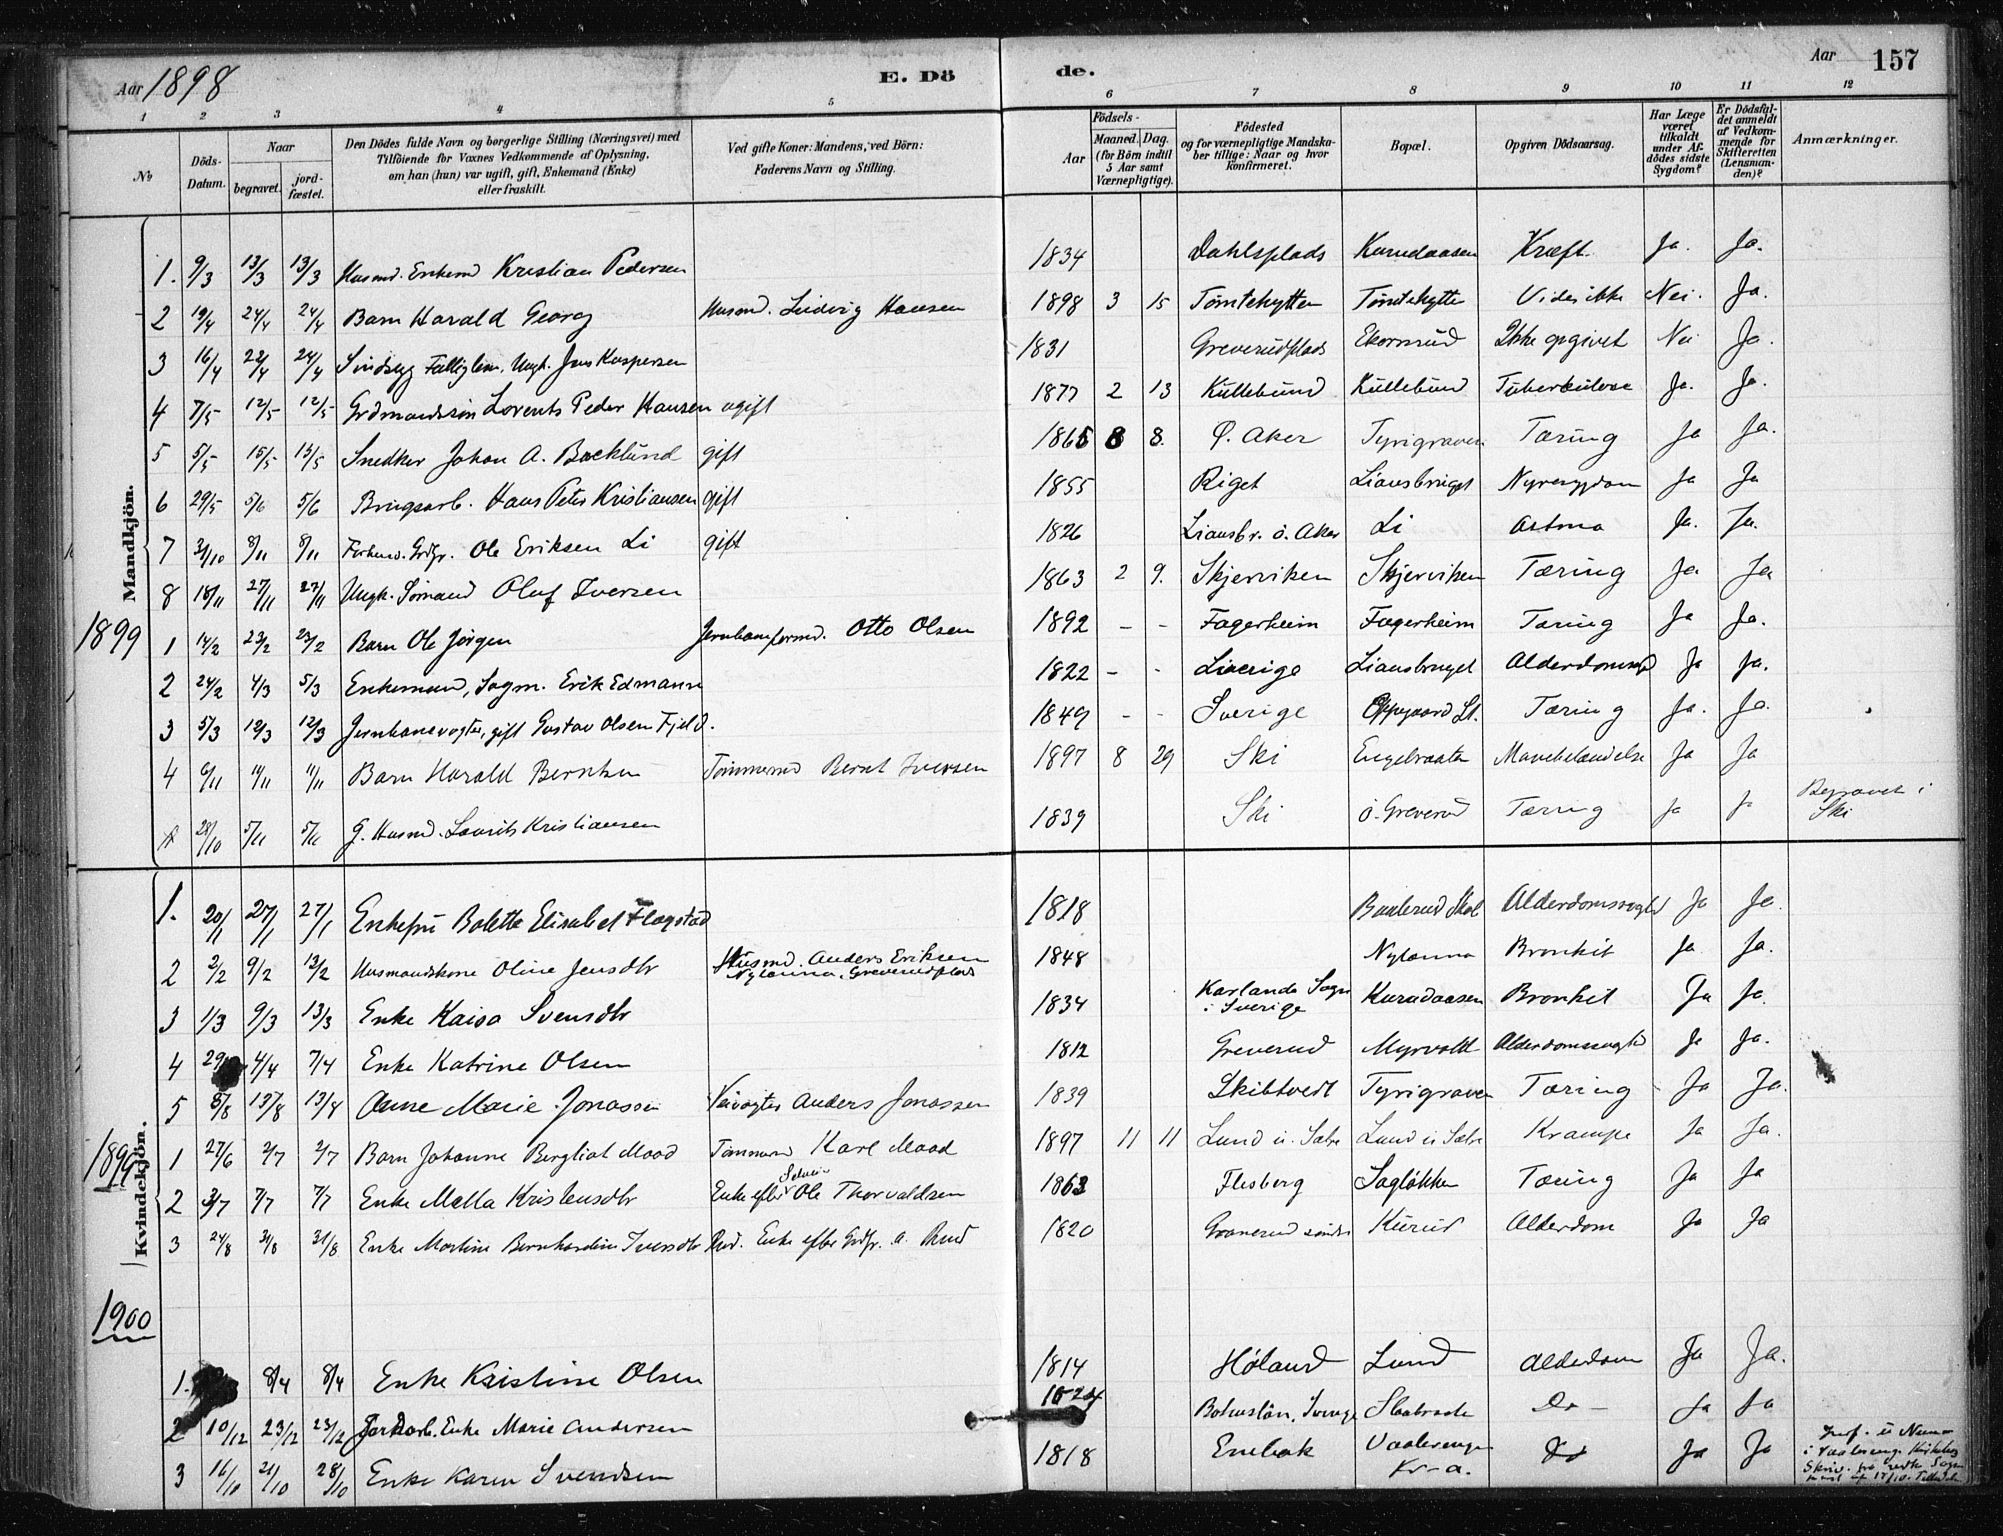 Aar 1898
E. Dö
de.
Aar 157
1 2 3 4 5 6 7 8 9 10 11 12
No
Döds-Datum.
Naar
begravet.
jord-fæstet.
Den Dödes fulde Navn og borgerlige Stilling (Næringsvei) med
Tilföiende for Vaxnes Vedkommende af Oplysning,
om han (hun) var ugift, gift, Enkemand (Enke)
eller fraskilt.
Ved gifte Koner: Mandens, ved Börn:
Faderens Navn og Stilling.
Födsels-
Aar
Maaned. Dag.
(for Börn indtil
5 Aar samt
Værnepligtige).
Födested
og for værnepligtige Mandska-
ber tillige: Naar og hvor
konfirmeret.
Bopæl.
Opgiven Dödsaarsag.
Har Læge
været
tilkaldt
under Af-
dödes sidste
Sygdom?
Er Dödsfal-
det anmeldt
af Vedkom-
mende for
Skifteretten
(Lensman-
den)?
Anmærkninger.
Mandkjön.
1. 9/3 13/3 13/3 Husmd. Enkemd Kristian Pedersen 1834 Dahlsplads Kurudaasen Kræft Ja. Ja.
2 19/4 24/4 24/4 Barn Harald Georg Husmd. Ludvig Hansen 1898 3 15 Tømtehytten Tømtehytte Vides ikke Nei. Ja.
3 16/4 22/4 24/4 Sindsyg Fattiglem, Ungk. Jens Kaspersen 1831 Greverudplads Ekornrud Ikke opgivet Nei Ja.
4 7/5 12/5 12/5 Grdmandssøn Lorents Peder Hansen ugift 1877 2 13 Kullebund Kullebund Tuberkulose Ja. Ja.
5 5/5 15/5 13/5 Snedker Johan A. Backlund gift 1865 8 8. Ø. Aker Tyrigraven Tæring Ja Ja.
6 29/5 5/6 5/6 Brugsarb. Hans Peter Kristiansen gift 1855 Riget Liansbruget Nyresygdom Ja Ja
7 31/10 8/11 8/11 Forhenv. Grdbr. Ole Eriksen Li gift 1826 Liansbr. ö. Aker Li Astma Ja. Ja.
8 18/11 27/11 27/11 Ungk. Sømand Oluf Iversen 1863 2 9. Skjerviken Skjerviken Tæring Ja Ja
1899
1 14/2 23/2 23/2 Barn Ole Jørgen Jernbaneformd. Otto Olsen 1892 - - Fagerheim Fagerheim Tæring Ja Ja.
2 24/2 4/3 5/3 Enkemand, Sagm. Erik Edmann 1822 - - Sverige Liansbruget Alderdomssvagh Ja Ja.
3 5/3 12/3 12/3 Jernbanevogter, gift Gustav Olsen Fjeld. 1849 - - Sverige Oppegaard St. Tæring Ja. Ja.
4 6/11 11/11 11/11 Barn Harald Berntsen Tømmermd Bernt Iversen 1897 8 29 Ski Engebraaten Mavebetændelse Ja Ja
28/10 5/11 5/11 G. Husmd. Laurits Kristiansen 1839 Ski ö. Greverud Tæring Ja Ja Begravet i
Ski
Kvindekjön.
1. 20/1 27/1 27/1 Enkefru Bolette Elisabet Flagstad 1818 Baalerud Skol Alderdomssvaghd Ja Ja.
2 2/2 9/2 13/2 Husmandskone Oline Jensdtr Husmd. Anders Eriksen
Nylænna, Greverudplads 1848 Nylænna Bronkit Ja Ja.
3 1/3 9/3 13/3 Enke Kaisa Svensdtr 1834 Karlanda Sogn
i Sverige Kurudaasen Bronkit Ja Ja.
4 29 4/4 7/4 Enke Katrine Olsen 1812 Greverud Myrvold Alderdomssvaghd Ja Ja.
5 5/8 13/8 13/8 Anne Marie Jonassen Veivogter Anders Jonassen 1839 Skibtvedt Tyrigraven Tæring Ja Ja.
1899
1 27/6 2/7 2/7 Barn Johanne Bergliot Mood Tømmermd Karl Mood 1897 11 11 Lund u. Sætre Lund u Sætre Krampe Ja Ja.
2 3/7 7/7 7/7 Enke Malla Kristensdtr Enke efter Ole Thorvaldsen 1863 Flesberg Sagløkken Tæring Ja Ja
3 24/8 31/8 31/8 Enke Martine Bernhardine Iversdtr Rud. Enke efter Grdbr. A. Rud 1820 Granerud søndre Kurud Alderdom Ja Ja
1900
1. 8/4 8/4 Enke Kristine Olsen 1814 Høland Lund Alderdom Ja Ja.
2 10/12 23/12 23/12 Jordarb. Enke Marie Andersen 1824 Bohuslän, Sverige Slaabraate Do - Ja Ja
3 16/10 21/10 28/10 Enke Karen Svendsen 1818 Enebak Vaalerengen
Kr-a. Do Ja Ja